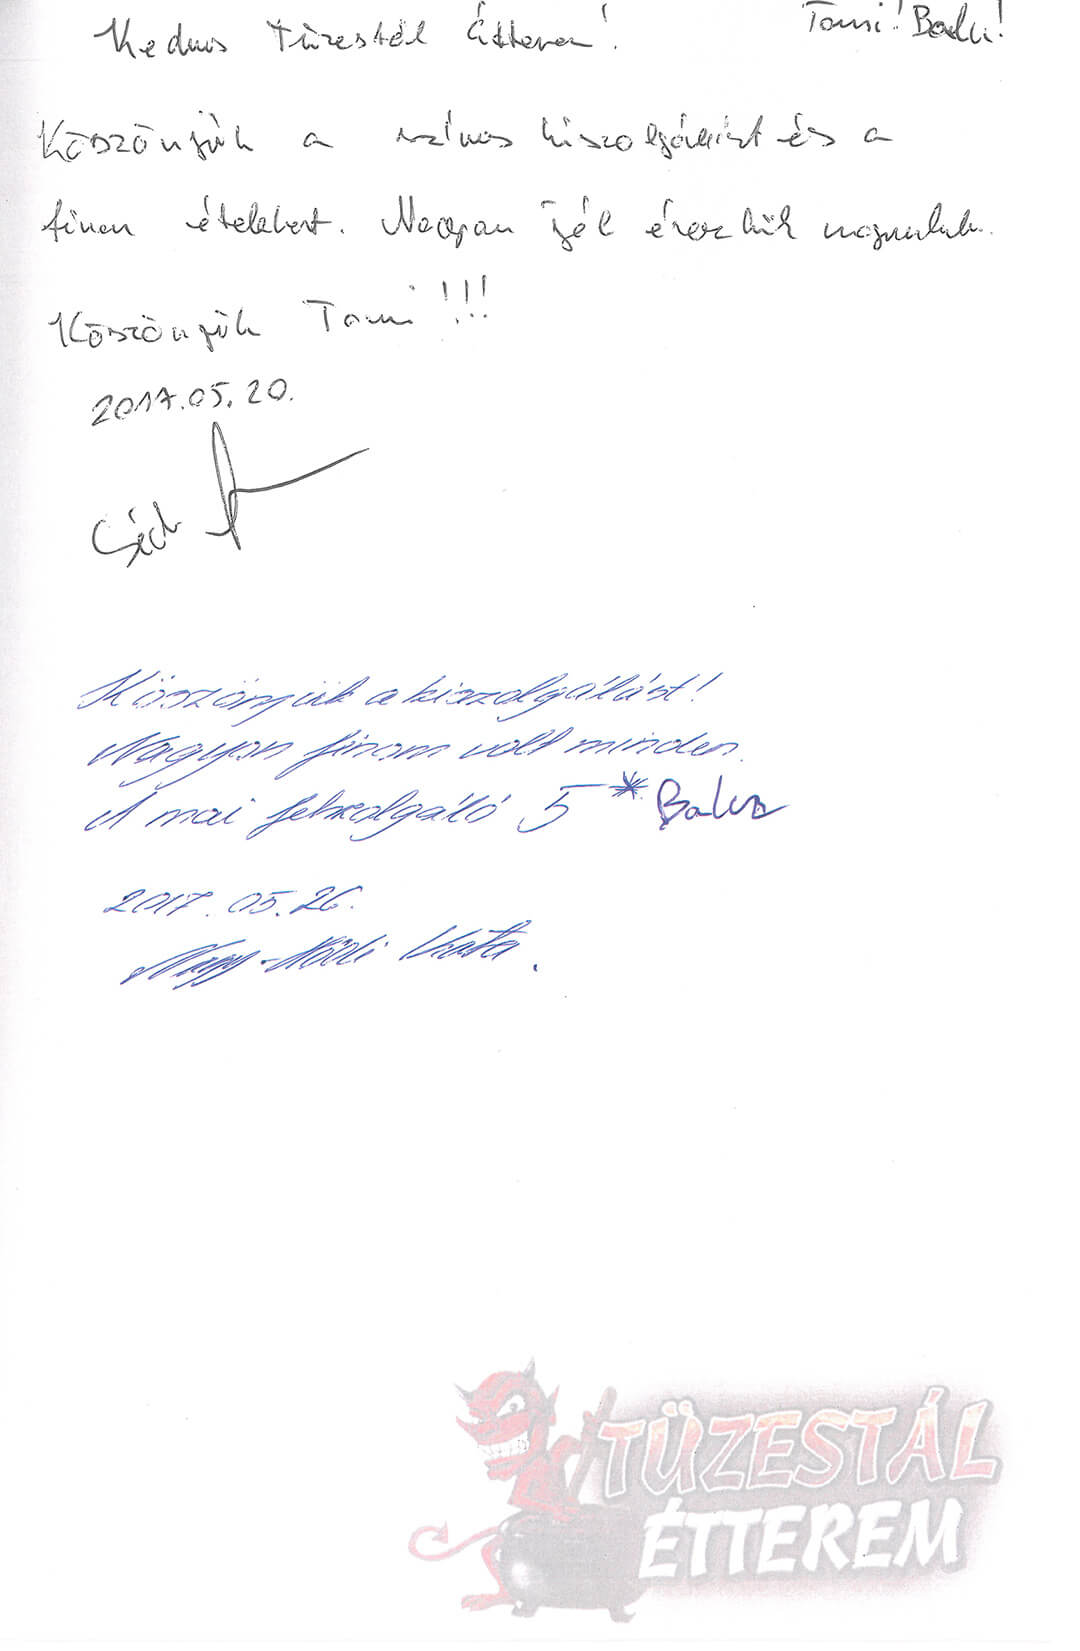 Kedves Tüzestál Étterem! Tomi! Balu!
Köszönjük a színes kiszolgálást és a
finom ételeket. Nagyon jól éreztük magunkat.
Köszönjük Tomi!!!
2017.05.20.
Köszönjük a kiszolgálást!
Nagyon finom volt minden.
A mai felszolgáló 5*
2017.05.26.
Kata.
TÜZESTÁL
ÉTTEREM